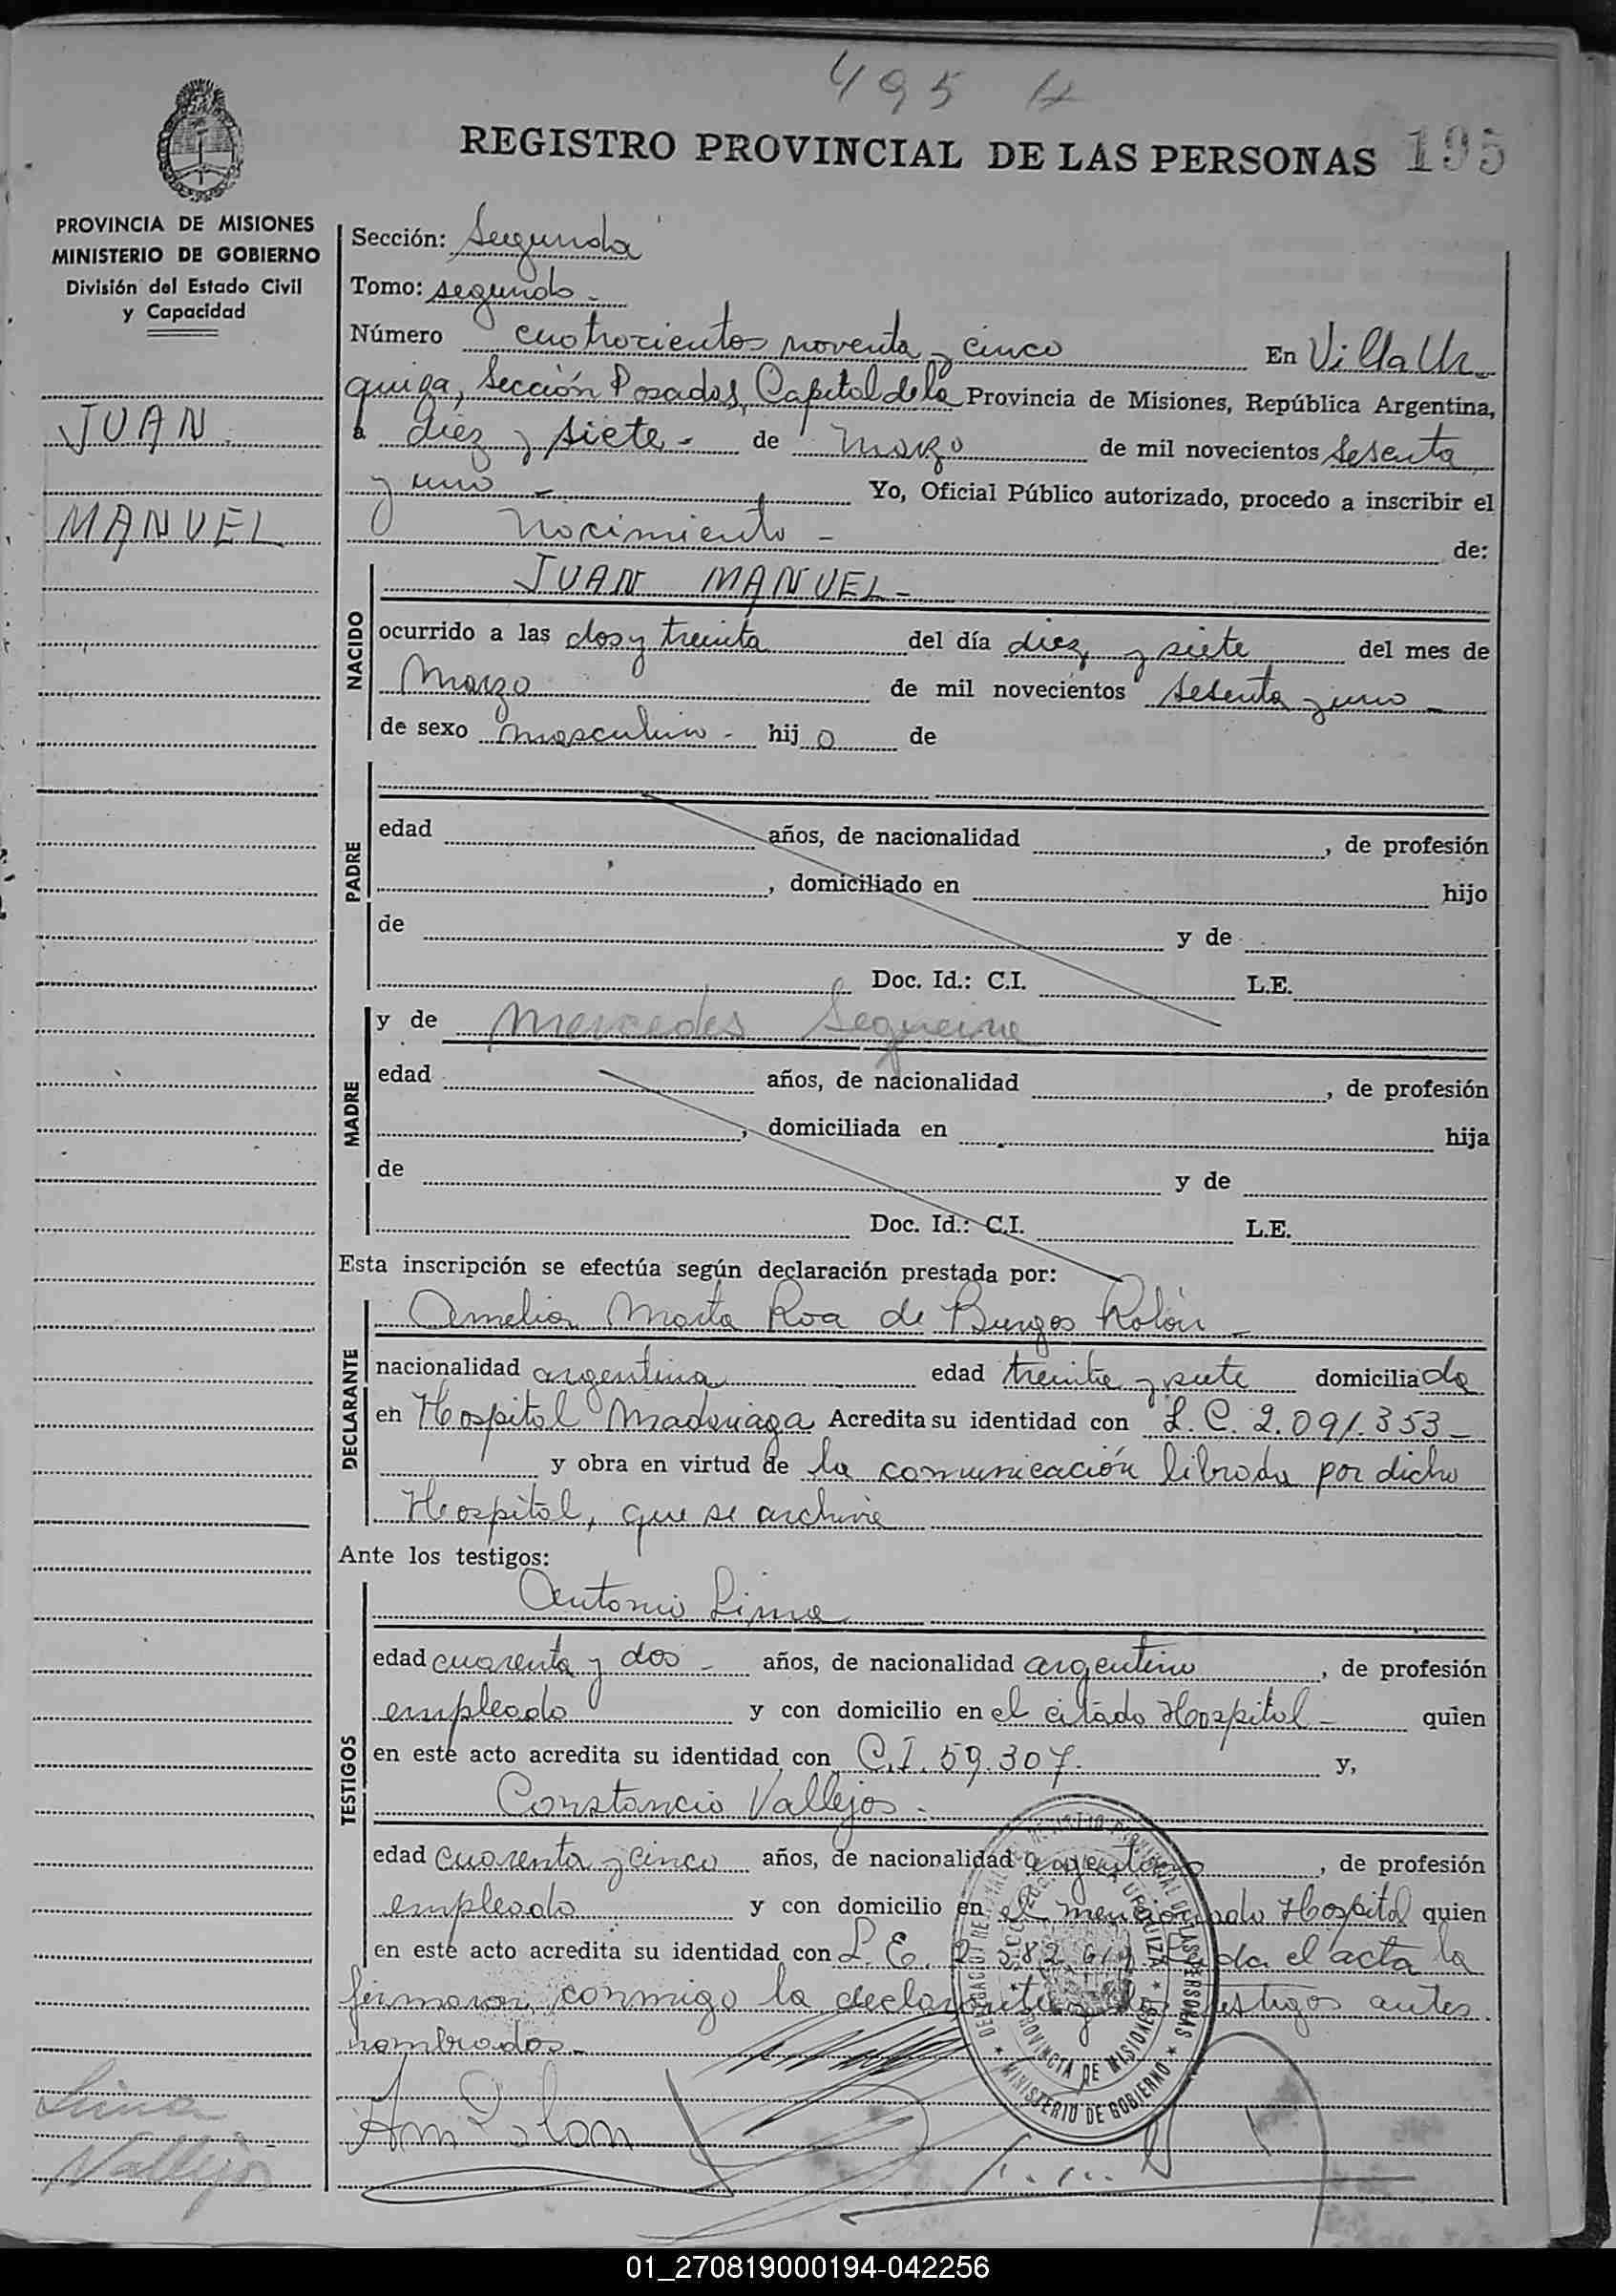 495 
REGISTRO PROVINCIAL DE LAS PERSONAS 195
PROVINCIA DE MISIONES
MINISTERIO DE GOBIERNO
División del Estado Civil
y Capacidad
JUAN
MANUEL
Sección: Segunda
Tomo: segundo -
Número cuatrocientos noventa y cinco En Villa Ur
quiza, Sección Posadas, Capital de la Provincia de Misiones, República Argentina,
a diez y siete - de marzo de mil novecientos sesenta
y uno - Yo, Oficial Público autorizado, procedo a inscribir el
nacimiento - de:
NACIDO
JUAN MANUEL -
ocurrido a las dos y treinta del día diez y siete del mes de
Marzo de mil novecientos sesenta y uno -
de sexo masculino - hij o de
PADRE
edad años, de nacionalidad , de profesión
, domiciliado en hijo
de y de
Doc. Id.: C.I. L.E.
MADRE
y de Mercedes Sequeira
edad años, de nacionalidad , de profesión
, domiciliada en hija
de y de
Doc. Id.: C.I. L.E.
Esta inscripción se efectúa según declaración prestada por:
DECLARANTE
Amelia Marta Roa de Burgos Rolón -
nacionalidad argentina edad treinta y siete domiciliada
en Hospital Madariaga Acredita su identidad con L.C. 2.091.353 -
y obra en virtud de la comunicación librada por dicho
Hospital, que se archiva
Ante los testigos:
TESTIGOS
Antonio Lima
edad cuarenta y dos - años, de nacionalidad argentino , de profesión
empleado y con domicilio en el citado Hospital - quien
en este acto acredita su identidad con C.I. 59.307. y,
Constancio Vallejos -
edad cuarenta y cinco años, de nacionalidad argentino , de profesión
empleado y con domicilio en el mencionado Hospital quien
en este acto acredita su identidad con L.E. el acta la
firmaron conmigo la declarante y los testigos antes
nombrados -
PROVINCIA DE MISIONES
MINISTERIO DE GOBIERNO
Lima
Vallejos
01_270819000194-042256